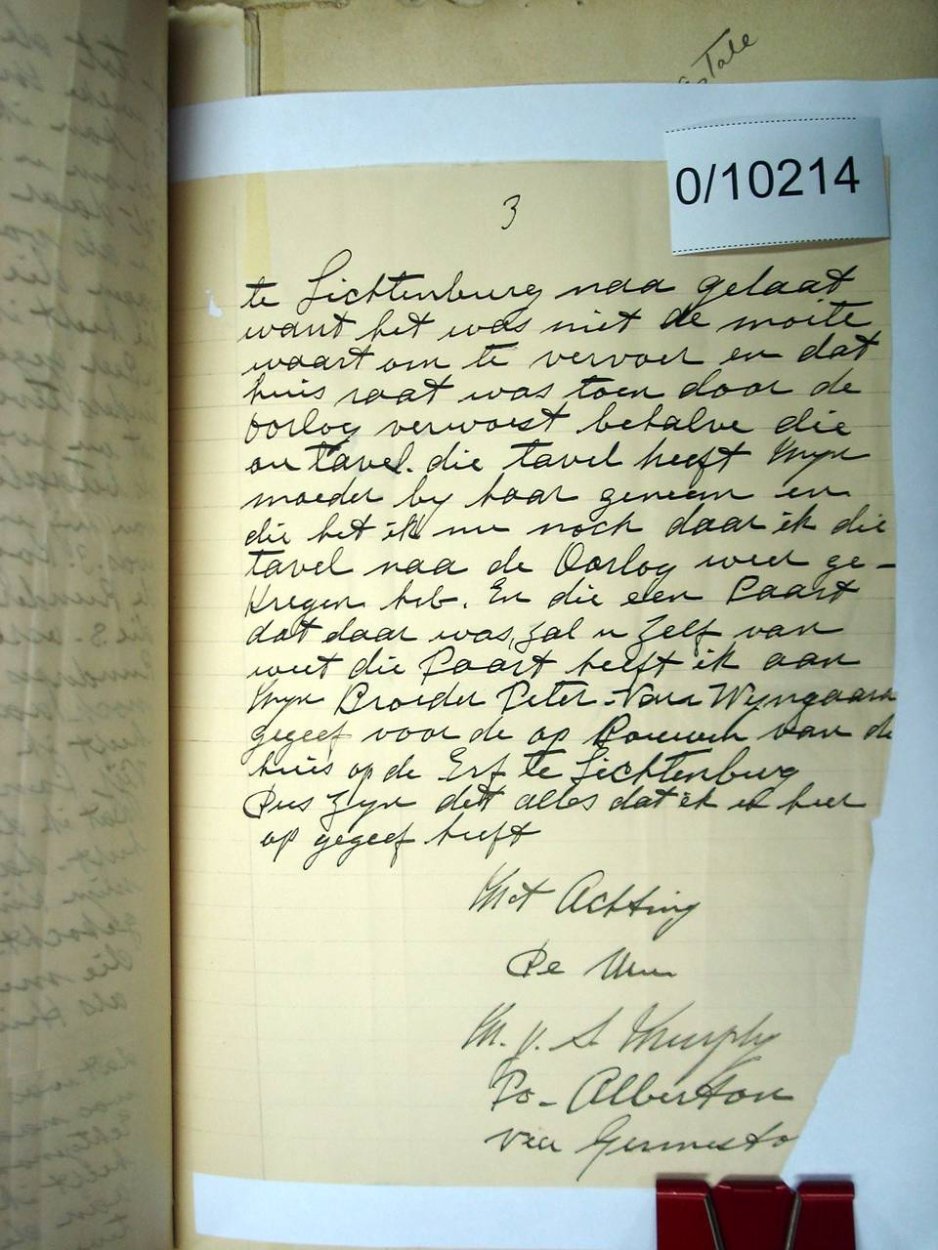 Tale
0/10214
3
te Lichtenburg naa gelaat
want het was niet de moite
waart om te vervoer en dat
huis raat was toen door de
oorlog verwoest behalve die
ou tavel. die tavel heeft Myn
moeder by haar geneem en
die het ik nu noch daar ik die
tavel naa de Oorlog weer ge-
kregen heb. En die een Paart
dat daar was, zal u zelf van
weet die Paart heeft ik aan
Myn Broeder Peter Van Wyngaard
gegeef voor de op Bouwen van de
huis op de Erf te Lichtenburg
Dus zyn dit alles dat ik u hier
op gegeef heeft
Met Achting
De Uwe
M. J. S. Murphy
Po- Alberton
via Germisto